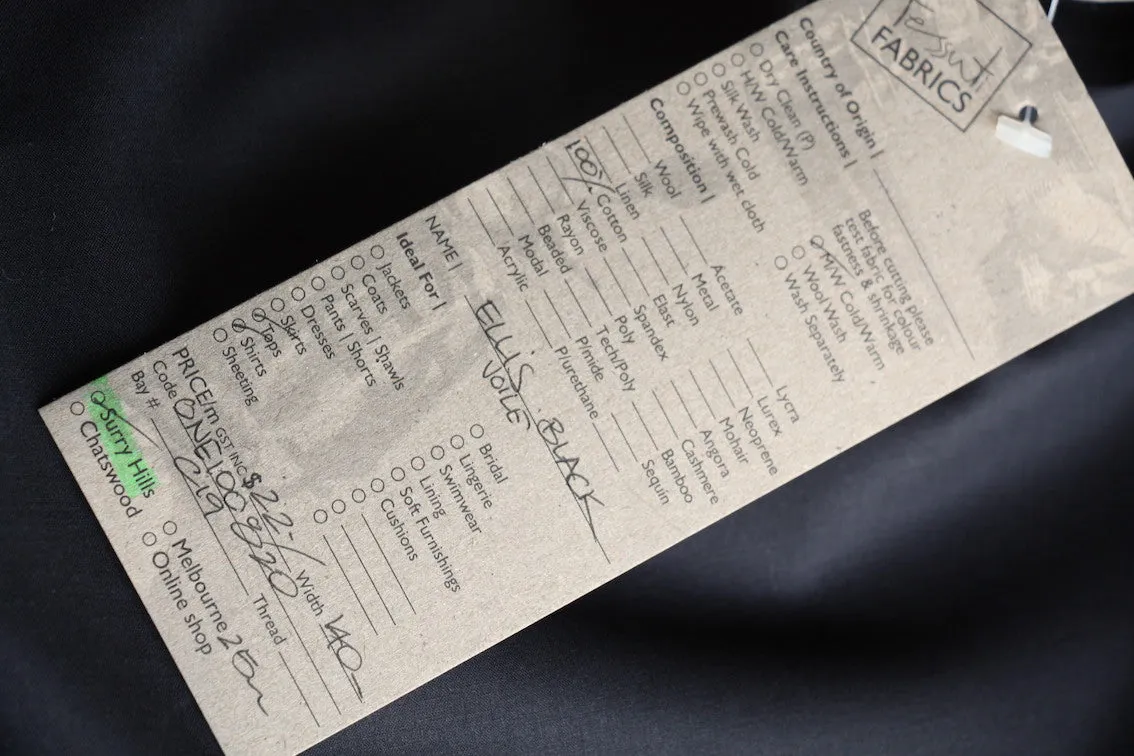 Tessuti
FABRICS
Country of Origin |
Care Instructions |
Dry Clean (P)
H/W Cold/Warm
Silk Wash
Prewash Cold
Wipe with wet cloth
Before cutting please
test fabric for colour
fastness & shrinkage
H/W Cold/Warm
Wool Wash
Wash Separately
Composition |
Wool
Silk
Linen
100% Cotton
Viscose
Rayon
Beaded
Modal
Acrylic
Acetate
Metal
Nylon
Elast
Spandex
Poly
Tech/Poly
P/mide
P/urethane
Lycra
Lurex
Neoprene
Mohair
Angora
Cashmere
Bamboo
Sequin
NAME | ELLIS . BLACK
VOILE
Ideal For |
Jackets
Coats
Scarves | Shawls
Pants | Shorts
Dresses
Skirts
Tops
Shirts
Sheeting
Bridal
Lingerie
Swimwear
Lining
Soft Furnishings
Cushions
PRICE/m GST INC $22-/ Width 140
Code ONE100820
Bay # C19 Thread
Surry Hills
Chatswood
Melbourne 25m
Online shop